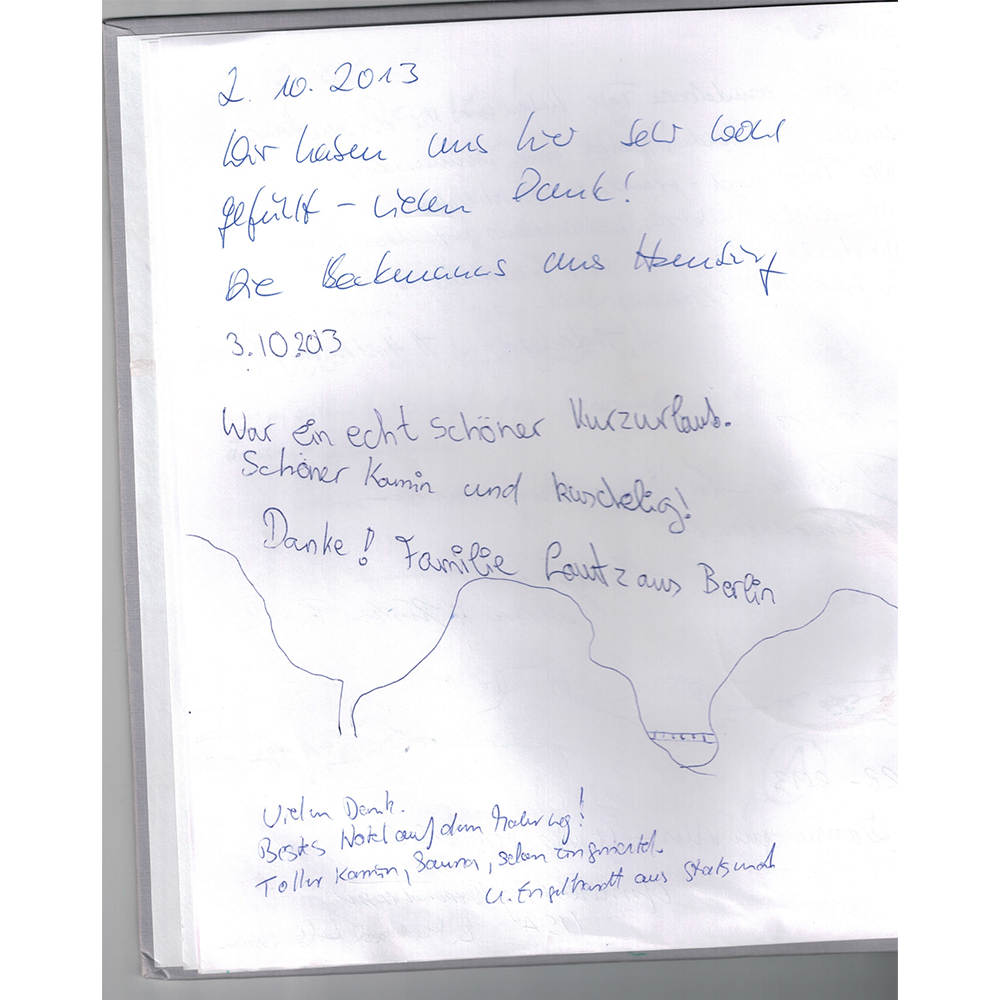 2. 10. 2013
Wir haben uns hier sehr wohl
gefühlt – vielen Dank!
Die Beckmanns aus Hamburg
3.10.2013
War ein echt schöner Kurzurlaub.
Schöner Kamin und kuschelig!
Danke! Familie Lautz aus Berlin
Vielen Dank.
Bestes Hotel auf dem Malerweg!
Toller Kamin, Sauna, schön eingerichtet.
U. Engelhardt aus Stralsund